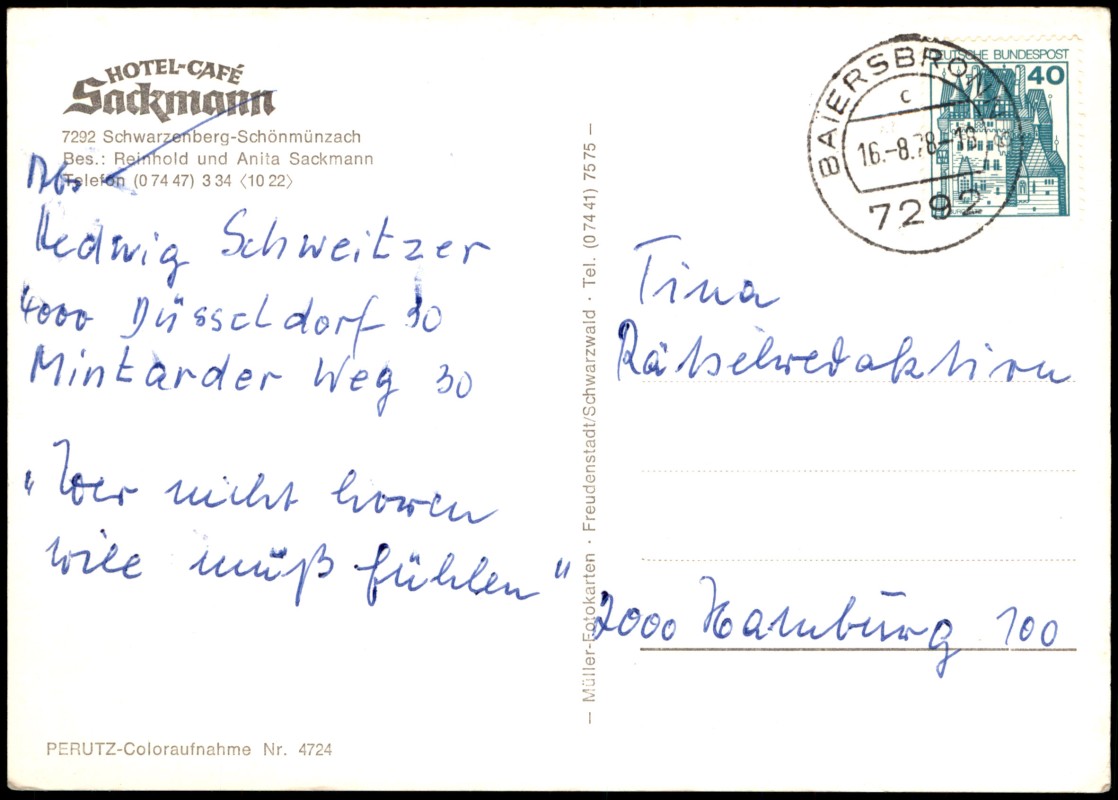 HOTEL-CAFÉ
Sackmann
7292 Schwarzenberg-Schönmünzach
Bes.: Reinhold und Anita Sackmann
Telefon (0 74 47) 3 34 ⟨10 22⟩
Abs.
Hedwig Schweitzer
4000 Düsseldorf 30
Mintarder Weg 30
"Wer nicht hören
will muß fühlen"
PERUTZ-Coloraufnahme Nr. 4724
— Müller-Fotokarten · Freudenstadt/Schwarzwald · Tel. (0 74 41) 75 75 —
BAIERSBRONN
c
16.-8.78-18
7292
DEUTSCHE BUNDESPOST
40
Tina
Rätselredaktion
2000 Hamburg 100